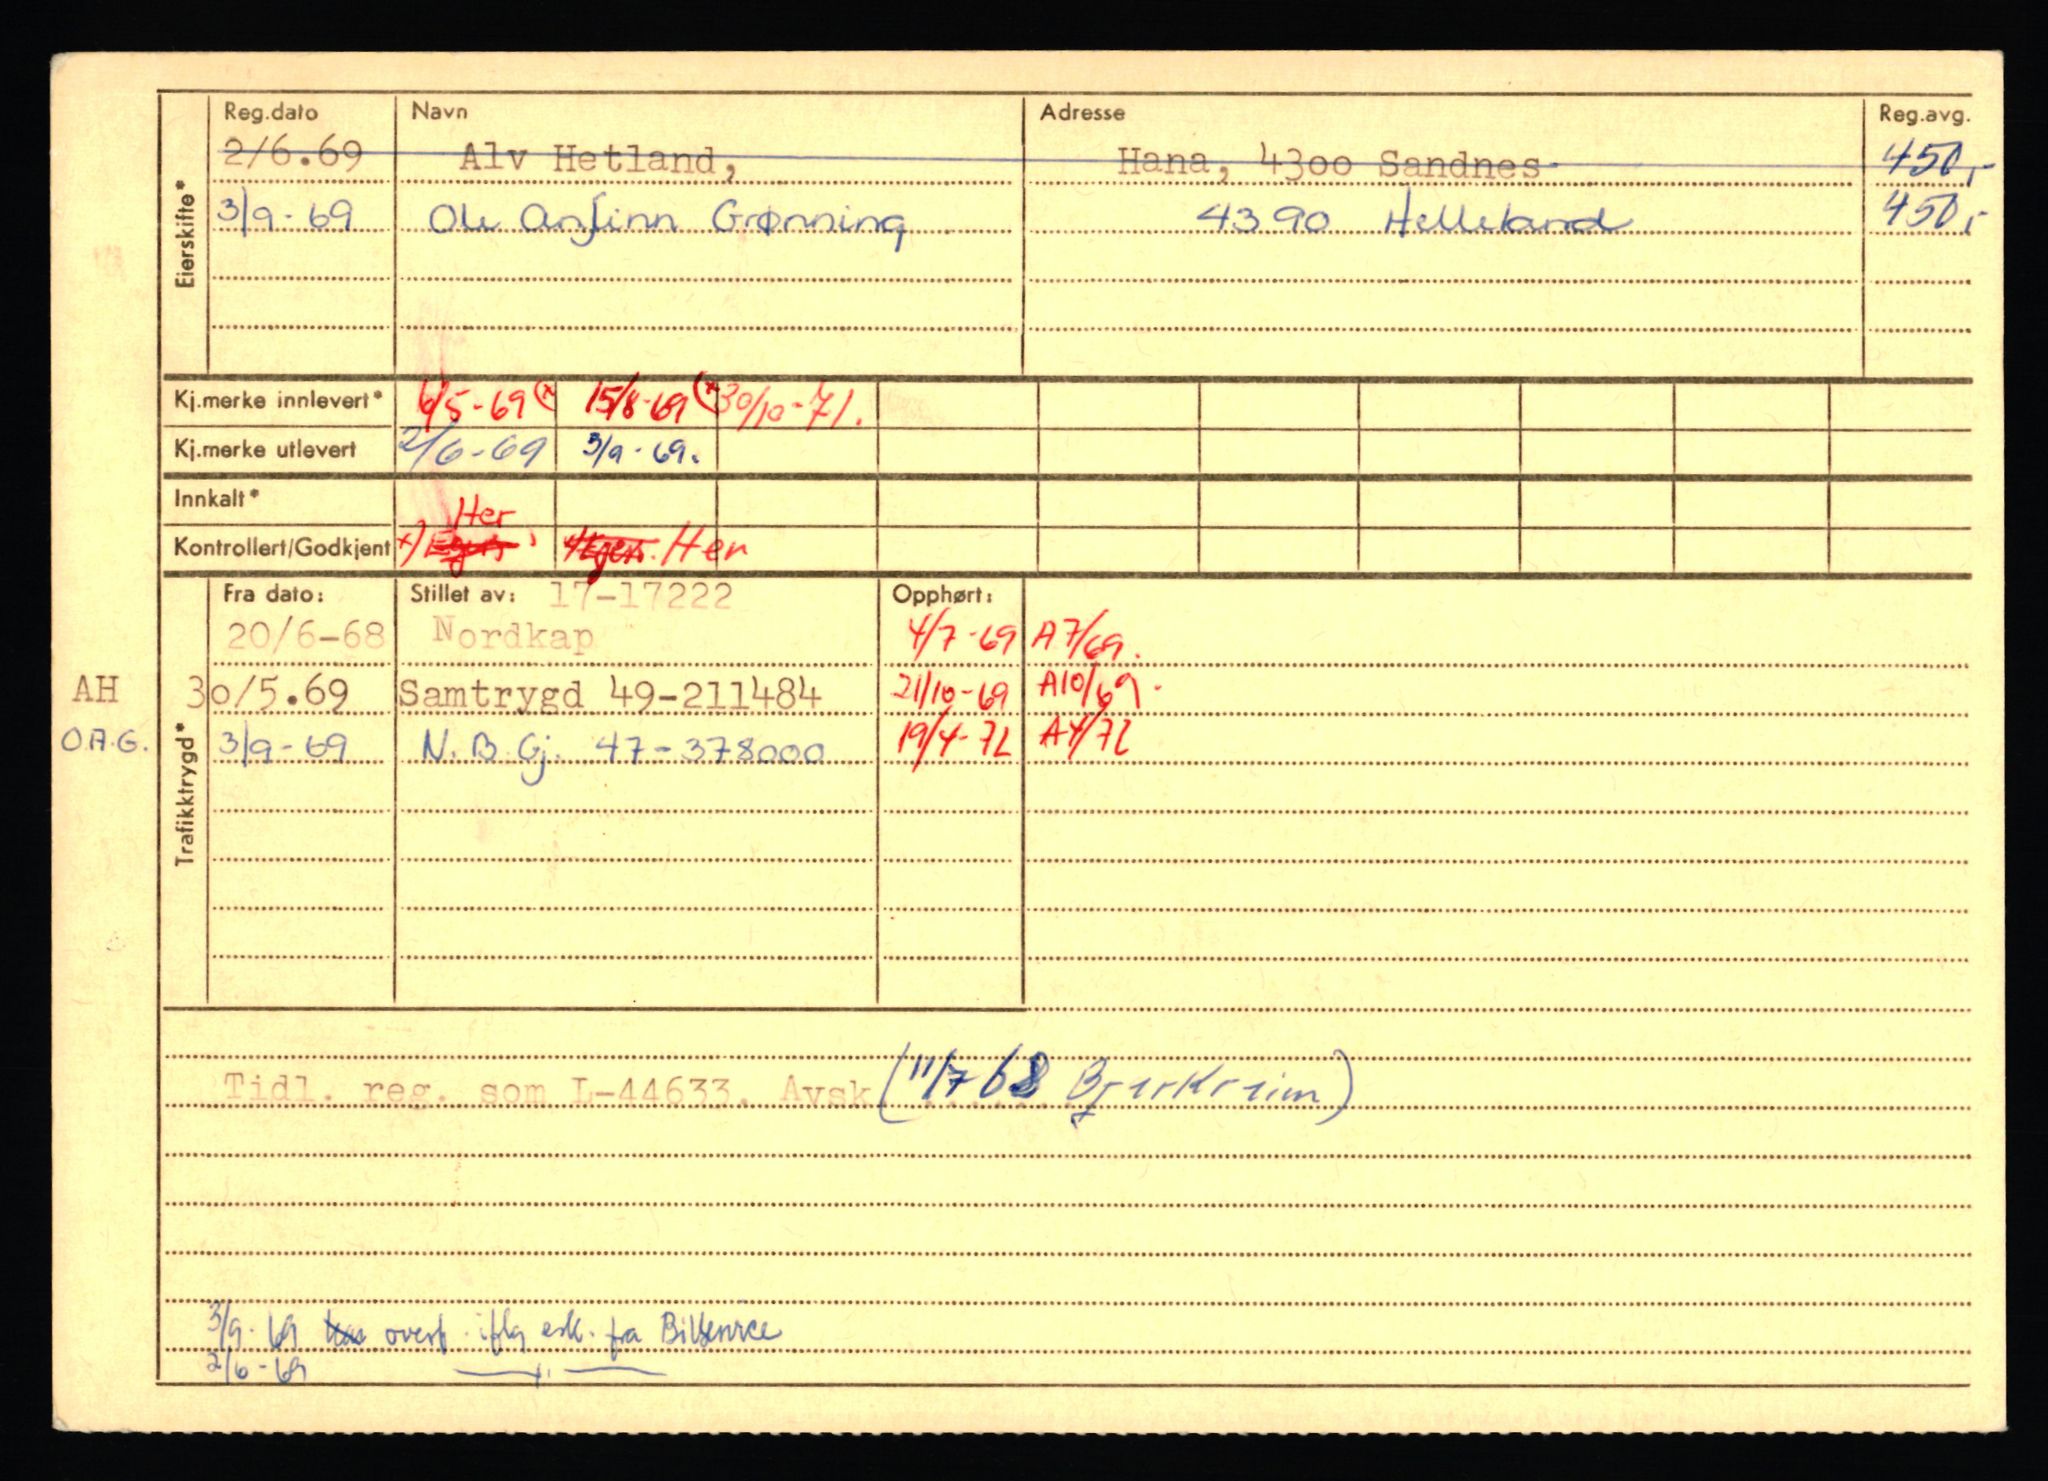 Reg.dato Navn Adresse Reg.avg.
2/6.69 Alv Hetland, Hana, 4300 Sandnes 450,-
3/9-69 Ole Anfinn Grønning 4390 Helleland 450,-
Eierskifte*
Kj.merke innlevert* 6/5-69 (x 15/8-69 (x 30/10-71.
Kj.merke utlevert 2/6-69 3/9-69.
Innkalt* Her
Kontrollert/Godkjent x) Egers x) Egers. Her
Fra dato: Stillet av: 17-17222 Opphørt:
20/6-68 Nordkap 4/7-69 A7/69.
AH 30/5.69 Samtrygd 49-211484 21/10-69 A10/69.
O.A.G. 3/9-69 N.B.Gj. 47-378000 19/4-72 A4/72
Trafikktrygd*
Tidl. reg. som L-44633. Avsk. (11/7 68 Bjerkreim)
3/9-69 overf. iflg erk. fra Bilservice
2/6-69 —"—